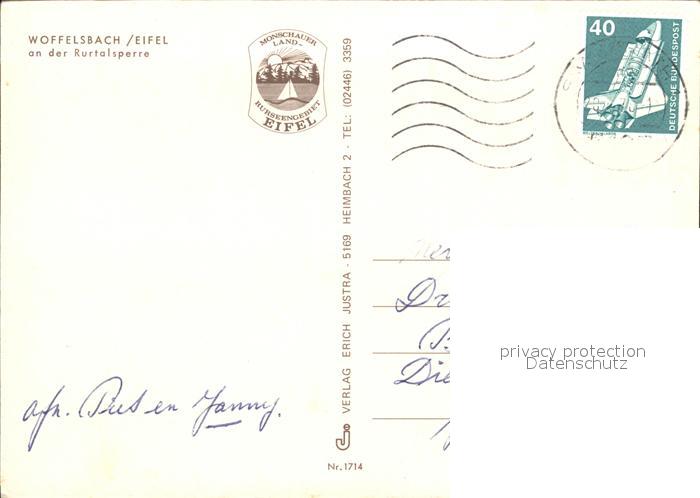 WOFFELSBACH /EIFEL
an der Rurtalsperre
MONSCHAUER
LAND-
RURSEENGEBIET
EIFEL
VERLAG ERICH JUSTRA - 5169 HEIMBACH 2 - TEL: (02446) 3359
Nr. 1714
40
DEUTSCHE BUNDESPOST
afz. Piet en Janny.
Dr
Die
privacy protection
Datenschutz